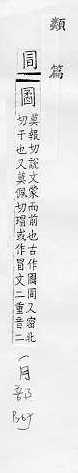 類篇
莫報切說文蒙而前也古作又密北
切干也又莫佩切瑁或作冒文二重音二
一月部